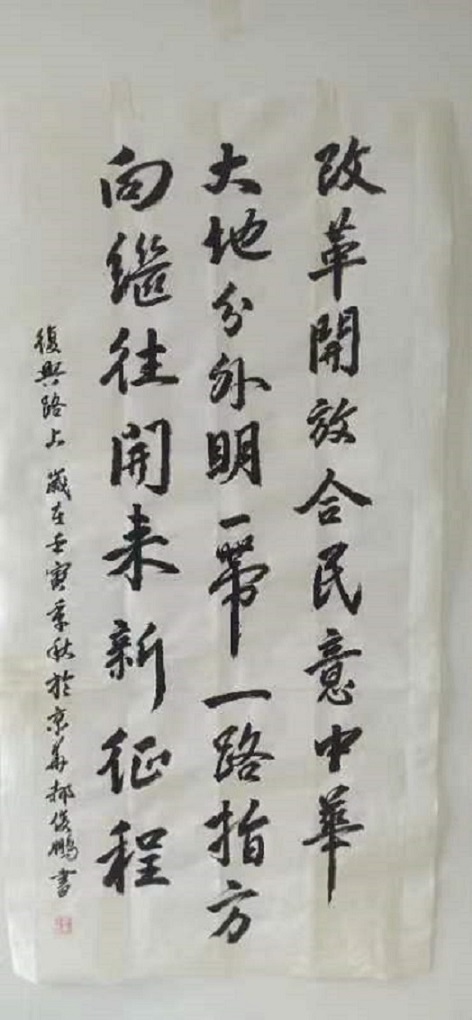 改革開放合民意中華
大地分外明一帶一路指方
向繼往開来新征程
復興路上 歲在壬寅季秋於京華郝俊鵬書